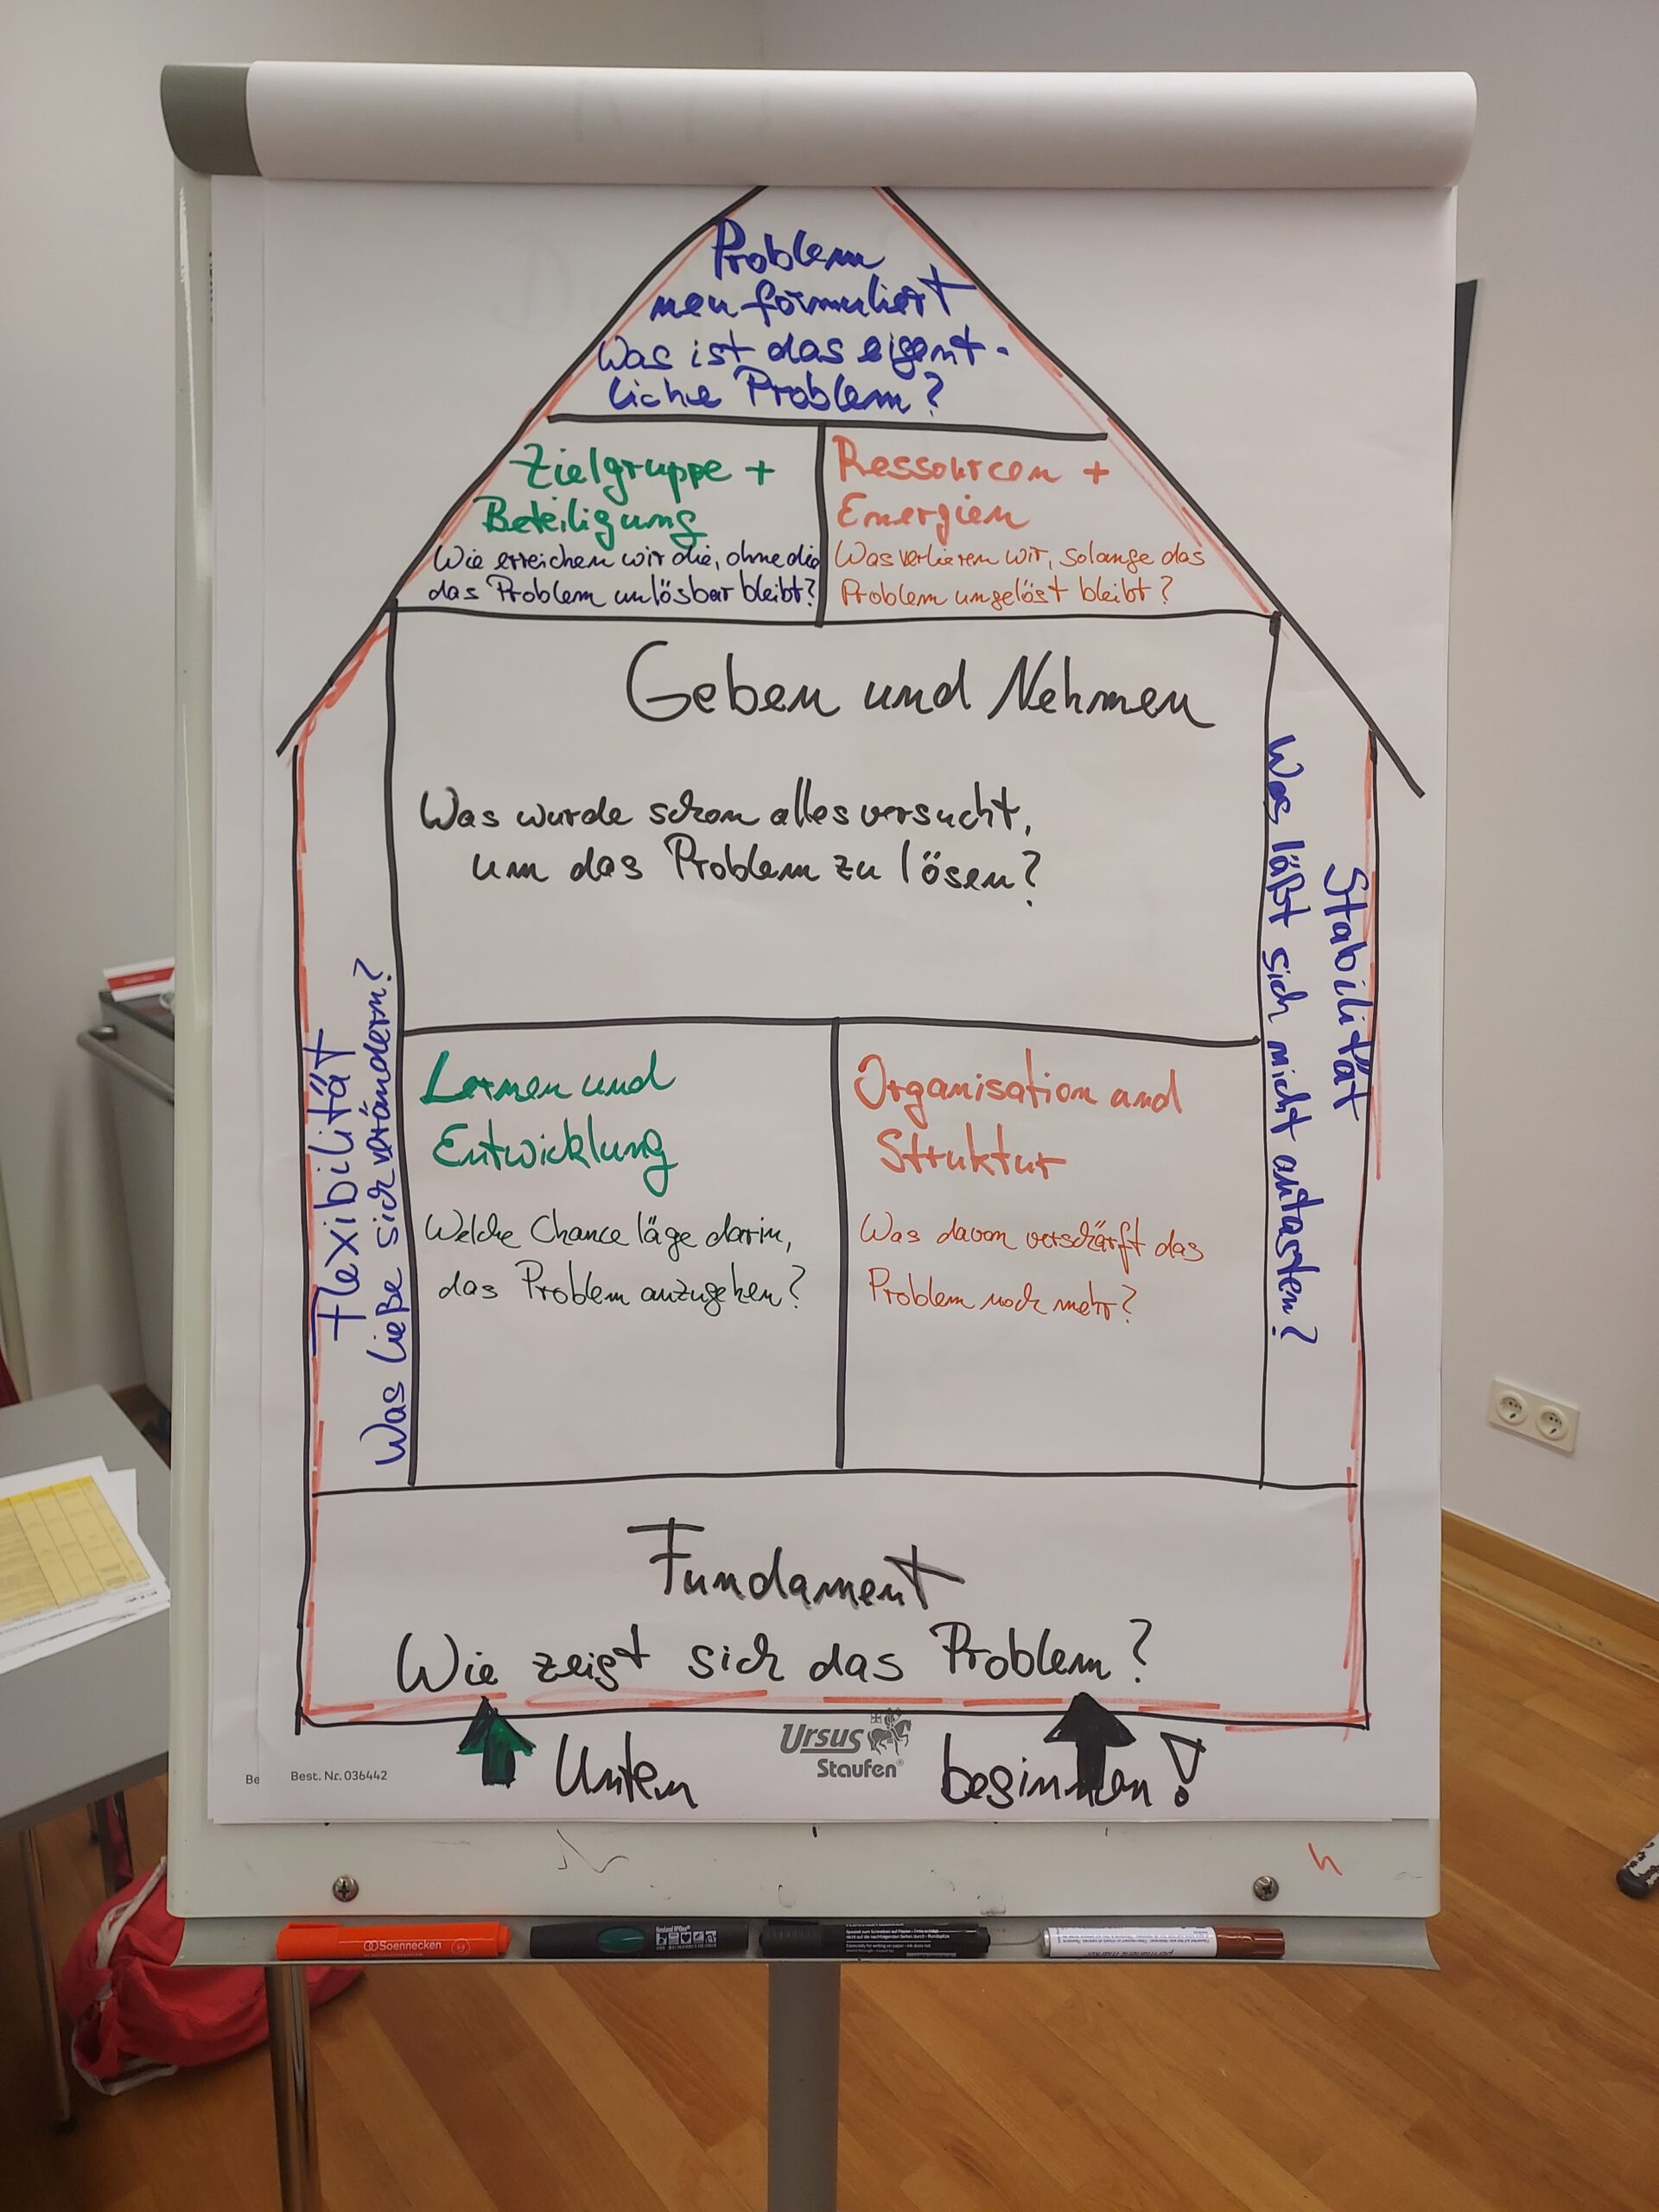 Problem
neu formuliert
Was ist das eigent-
liche Problem?
Zielgruppe +
Beteiligung
Wie erreichen wir die, ohne die
das Problem unlösbar bleibt?
Ressourcen +
Energien
Was verlieren wir, solange das
Problem ungelöst bleibt?
Geben und Nehmen
Was wurde schon alles versucht,
um das Problem zu lösen?
Flexibilität
Was ließe sich verändern?
Stabilität
Was läßt sich nicht antasten?
Lernen und
Entwicklung
Welche Chance läge darin,
das Problem anzugehen?
Organisation und
Struktur
Was davon verschärft das
Problem noch mehr?
Fundament
Wie zeigt sich das Problem?
Unten beginnen!
Ursus
Staufen®
Be
Best. Nr. 036442
Soennecken
permanent marker